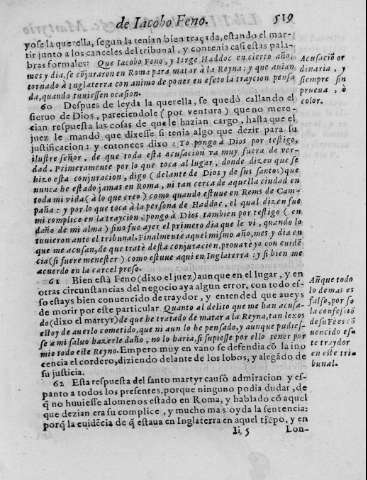 de Iacobo Feno. 519
yose la querella, segun la tenian bien traçada, estando el mar-
tir junto a los canceles del tribunal, y contenia casi estas pala-
bras formales: Que Iacobo Feno, y Iorge Haddoc en cierto año,
mes y dia, se cõjuraron en Roma para matar a la Reyna: y que auian
tornado a Inglaterra con animo de poner en efeto la traycion pensa
da, quando tuuiessen ocasion.
Acusació or
dinaria, y
siempre sin
prueua, ò
color.
60 Despues de leyda la querella, se quedò callando el
sieruo de Dios, pareciendole (por ventura) que no mere-
cian respuesta las cosas de que le hazian cargo, hasta que el
juez le mandò que dixesse si tenia algo que dezir para su
justificacion: y entonces dixo: Yo pongo à Dios por testigo,
ilustre señor, de que toda esta acusacion va muy fuera de ver-
dad. Primeramente por lo que toca al lugar, donde dizen que se
hizo esta conjuracion, digo (delante de Dios y de sus santos) que
nunca he estado jamas en Roma, ni tan cerca de aquella ciudad en
toda mi vida (à lo que creo) como quando estuue en Rems de Cam-
paña: y por lo que toca à la persona de Haddoc, el qual dizen fue
mi complice en la traycion: pongo à Dios tambien por testigo (en
daño de mi alma) sino fue ayer el primero dia que le vi, quando lo
tuuieron ante el tribunal. Finalmente aquel mismo año, mes y dia en
que me acusan, de que tratè desta conjuracion, prouarè yo con euidẽ-
cia (si fuere menester) como estuue aqui en Inglaterra: y si bien me
acuerdo en la carcel preso.
61 Bien està Feno (dixo el juez) aun que en el lugar, y en
otras circunstancias del negocio aya algun error, con todo es-
so estays bien conuencido de traydor, y entended que aueys
de morir por este particular. Quanto al delito que me han acusa-
do (dixo el martyr) de que he tratado de matar a la Reyna, tan lexos
estoy de auerlo cometido, que ni aun lo he pensado, y aunque pudies-
se a mi saluo hazerle daño, no lo haria, si supiesse por ello tener por
mio todo este Reyno. Empero muy en vano se defendia cõ la ino
cencia el cordero, diziendo delante de los lobos, y alegãdo de
su justicia.
Aũque todo
lo demas es
falso, por so
la confessiõ
de su Fees cõ
dẽnado es-
te traydor
en este tri-
bunal.
62 Esta respuesta del santo martyr causò admiracion y es-
panto a todos los presentes, porque ninguno podia dudar, de
q̃ no huuiesse alomenos estado en Roma, y hablado cõ aquel
que dezian era su complice, y mucho mas oyda la sentencia:
porq̃ la euidẽcia de q̃ estaua en Inglaterra en aquel tiẽpo, y en
Ii 5 Lon-